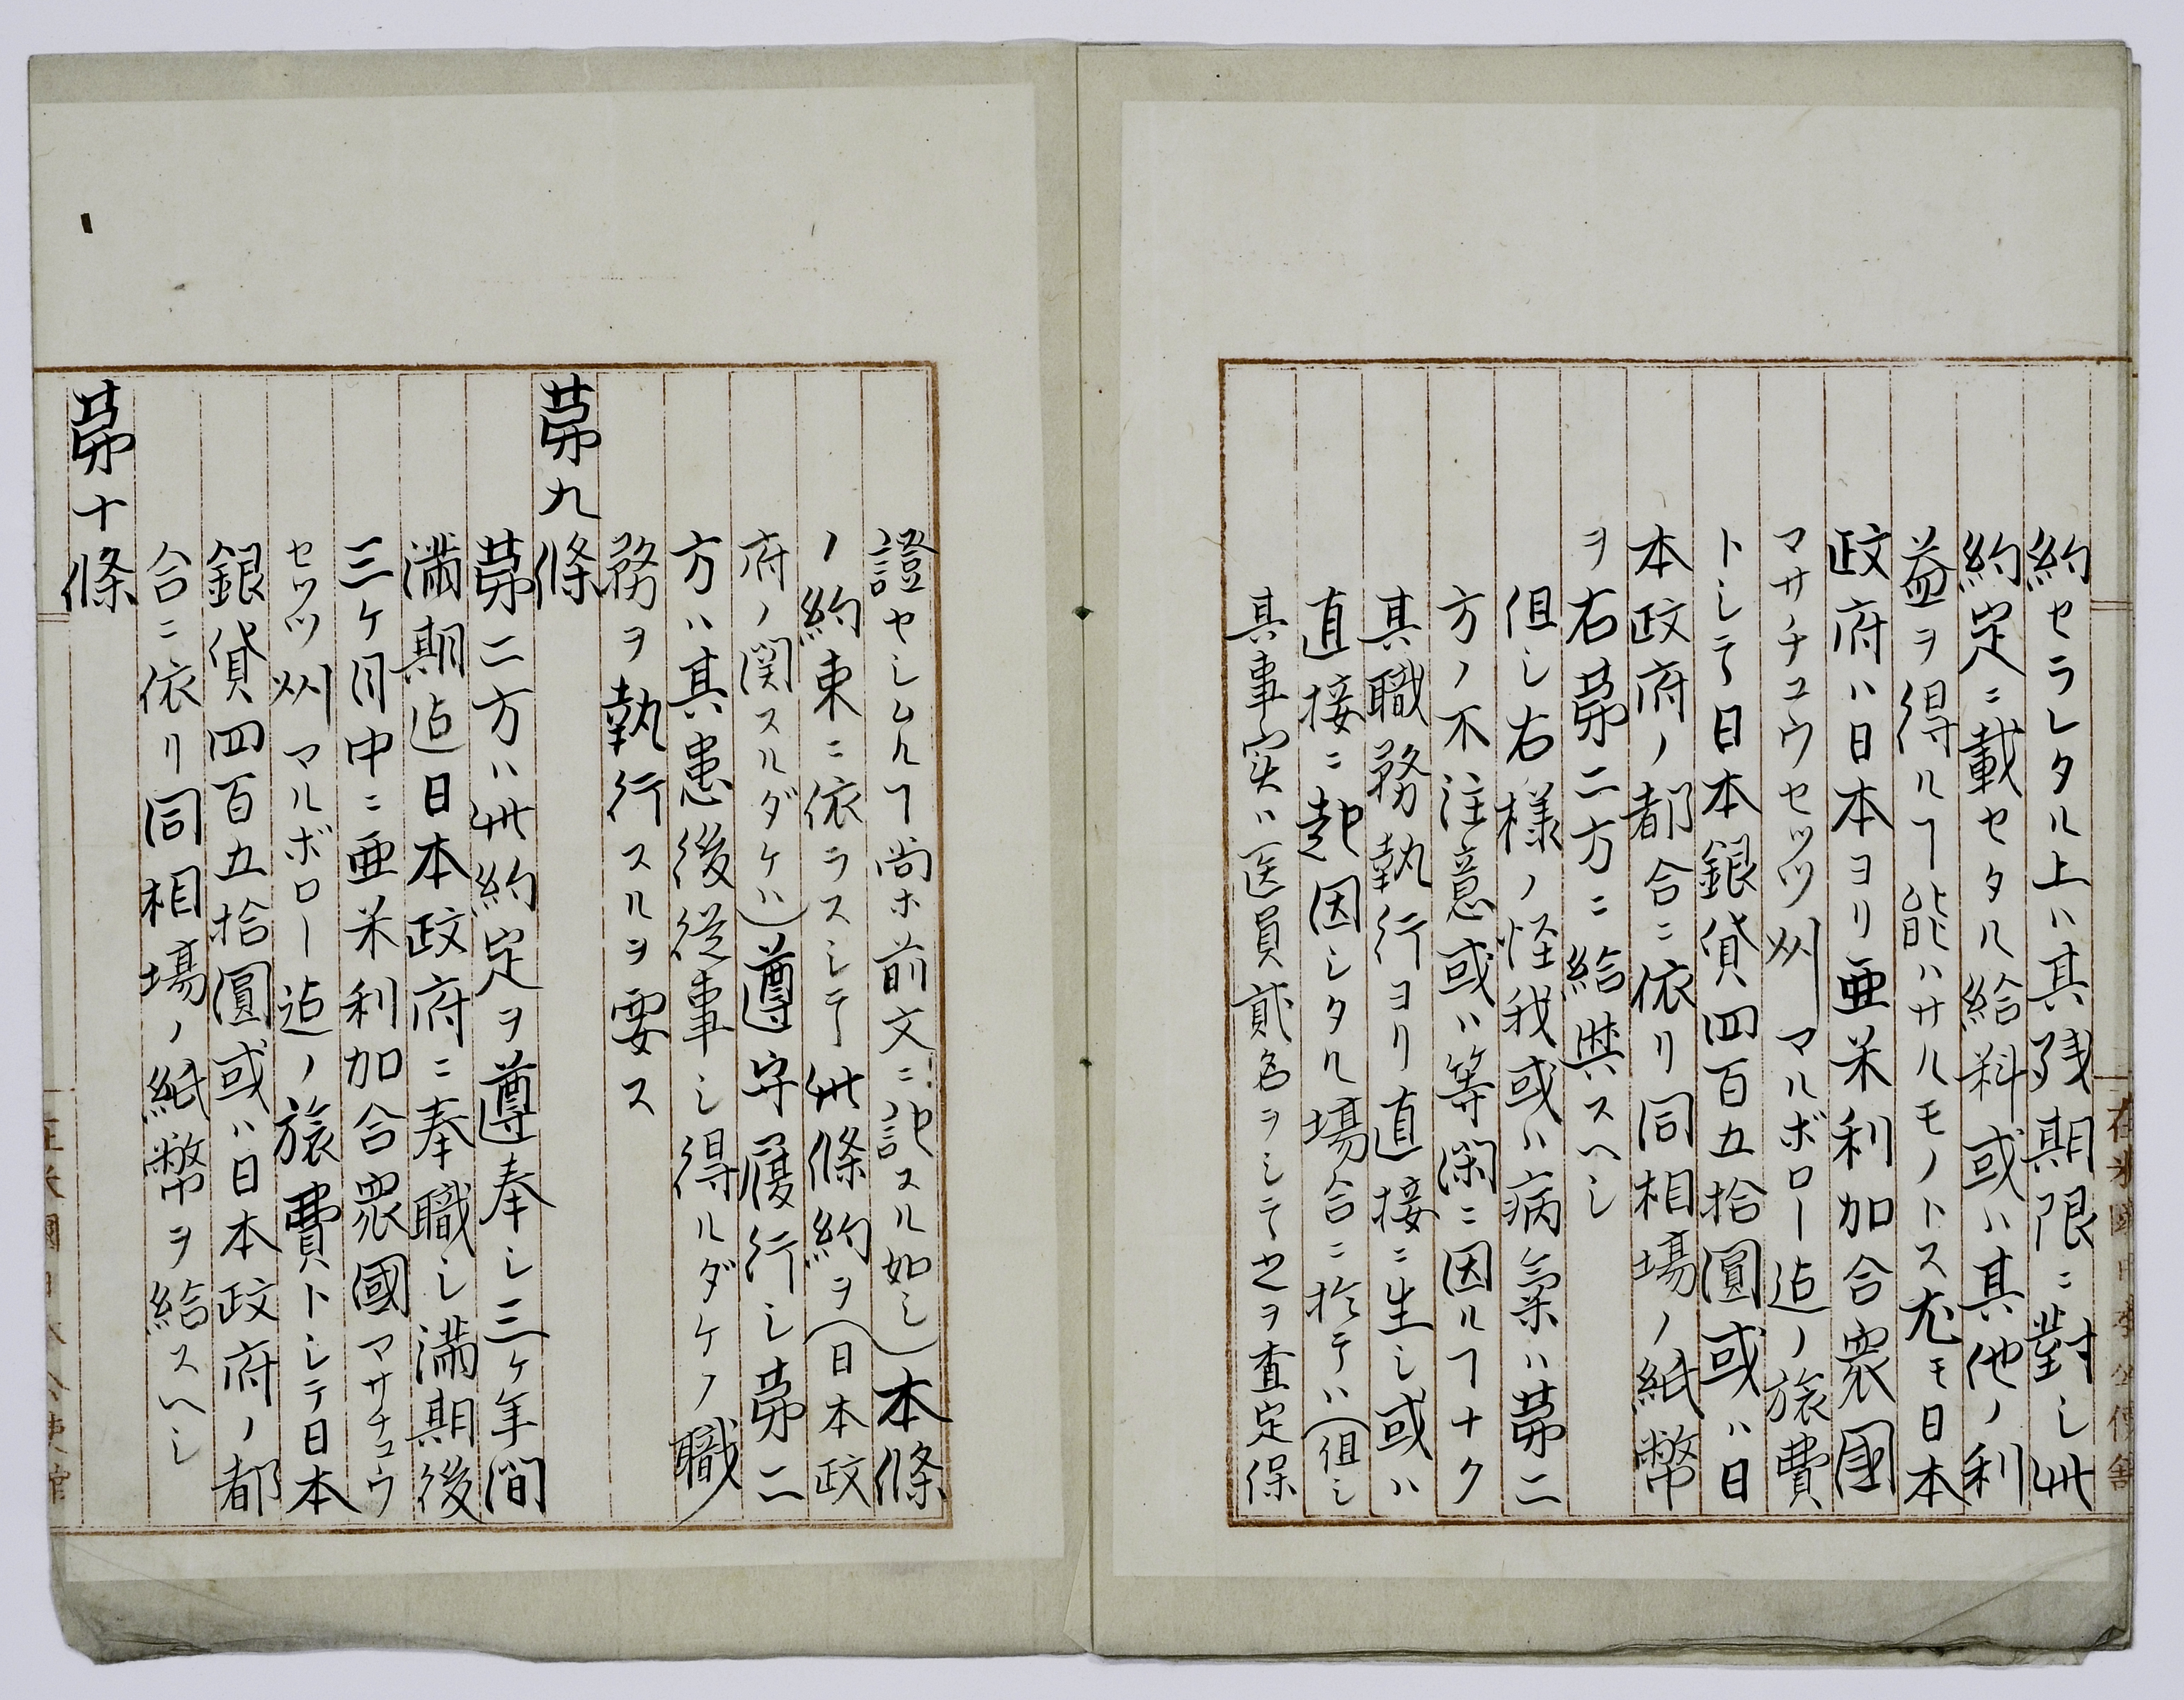 約セラレタル上ハ其残期限ニ對し此
約定ニ載セタル給料或ハ其他ノ利
益ヲ得ルヿ能ハサルモノトス尤モ日本
政府ハ日本ヨリ亜米利加合衆國
マサチユウセツツ州マルボロー迠ノ旅費
トシテ日本銀貨四百五拾圓或ハ日
本政府ノ都合ニ依リ同相場ノ紙幣
ヲ右第二方ニ給與スヘシ
但し右様ノ怪我或ハ病氣ハ第二
方ノ不注意或ハ等閑ニ因ルヿナク
其職務執行ヨリ直接ニ生し或ハ
直接ニ起因シタル場合ニ於テハ(但し
其事実ハ医員貳名ヲシテ之ヲ査定保
證セシムルヿ尚ホ前文ニ記スル如し)本條
ノ約束ニ依ラスシテ此條約ヲ(日本政
府ノ関スルダケハ)遵守履行し第二
方ハ其患後従事し得ルダケノ職
務ヲ執行スルヲ要ス
第九條
第二方ハ此約定ヲ遵奉し三ケ年間
満期迠日本政府ニ奉職し満期後
三ケ月中ニ亜米利加合衆國マサチユウ
セツツ州マルボロー迠ノ旅費トシテ日本
銀貨四百五拾圓或ハ日本政府ノ都
合ニ依リ同相場ノ紙幣ヲ給スヘシ
第十條
在米國日本公使館
在米國日本公使館